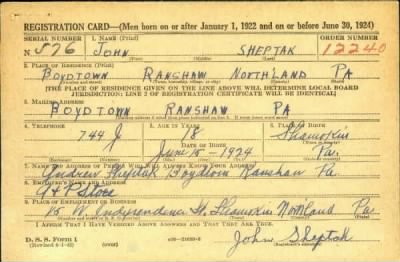 REGISTRATION CARD—(Men born on or after January 1, 1922 and on or before June 30, 1924)
SERIAL NUMBER 1. NAME (Print) ORDER NUMBER
N 576 JOHN SHEPTAK 12240
(First) (Middle) (Last)
2. PLACE OF RESIDENCE (Print)
BOYDTOWN RANSHAW NORTH'LAND PA
(Number and street) (Town, township, village, or city) (County) (State)
[THE PLACE OF RESIDENCE GIVEN ON THE LINE ABOVE WILL DETERMINE LOCAL BOARD
JURISDICTION; LINE 2 OF REGISTRATION CERTIFICATE WILL BE IDENTICAL]
3. MAILING ADDRESS
BOYDTOWN RANSHAW PA
4. TELEPHONE 5. AGE IN YEARS 6. PLACE OF BIRTH
744 J 18 Shamokin
DATE OF BIRTH
June 15 - 1924 Pa.
7. NAME AND ADDRESS OF PERSON WHO WILL ALWAYS KNOW YOUR ADDRESS
Andrew Sheptak Boydtown Ranshaw Pa.
8. EMPLOYER'S NAME AND ADDRESS
A & P Store
9. PLACE OF EMPLOYMENT OR BUSINESS
W. Independence St. Shamokin North'land Pa
I AFFIRM THAT I HAVE VERIFIED ABOVE ANSWERS AND THAT THEY ARE TRUE.
D. S. S. FORM 1
(over)
John Sheptak